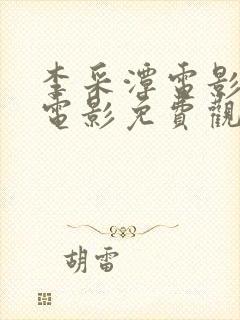 李采潭電影
電影免費觀
胡雷